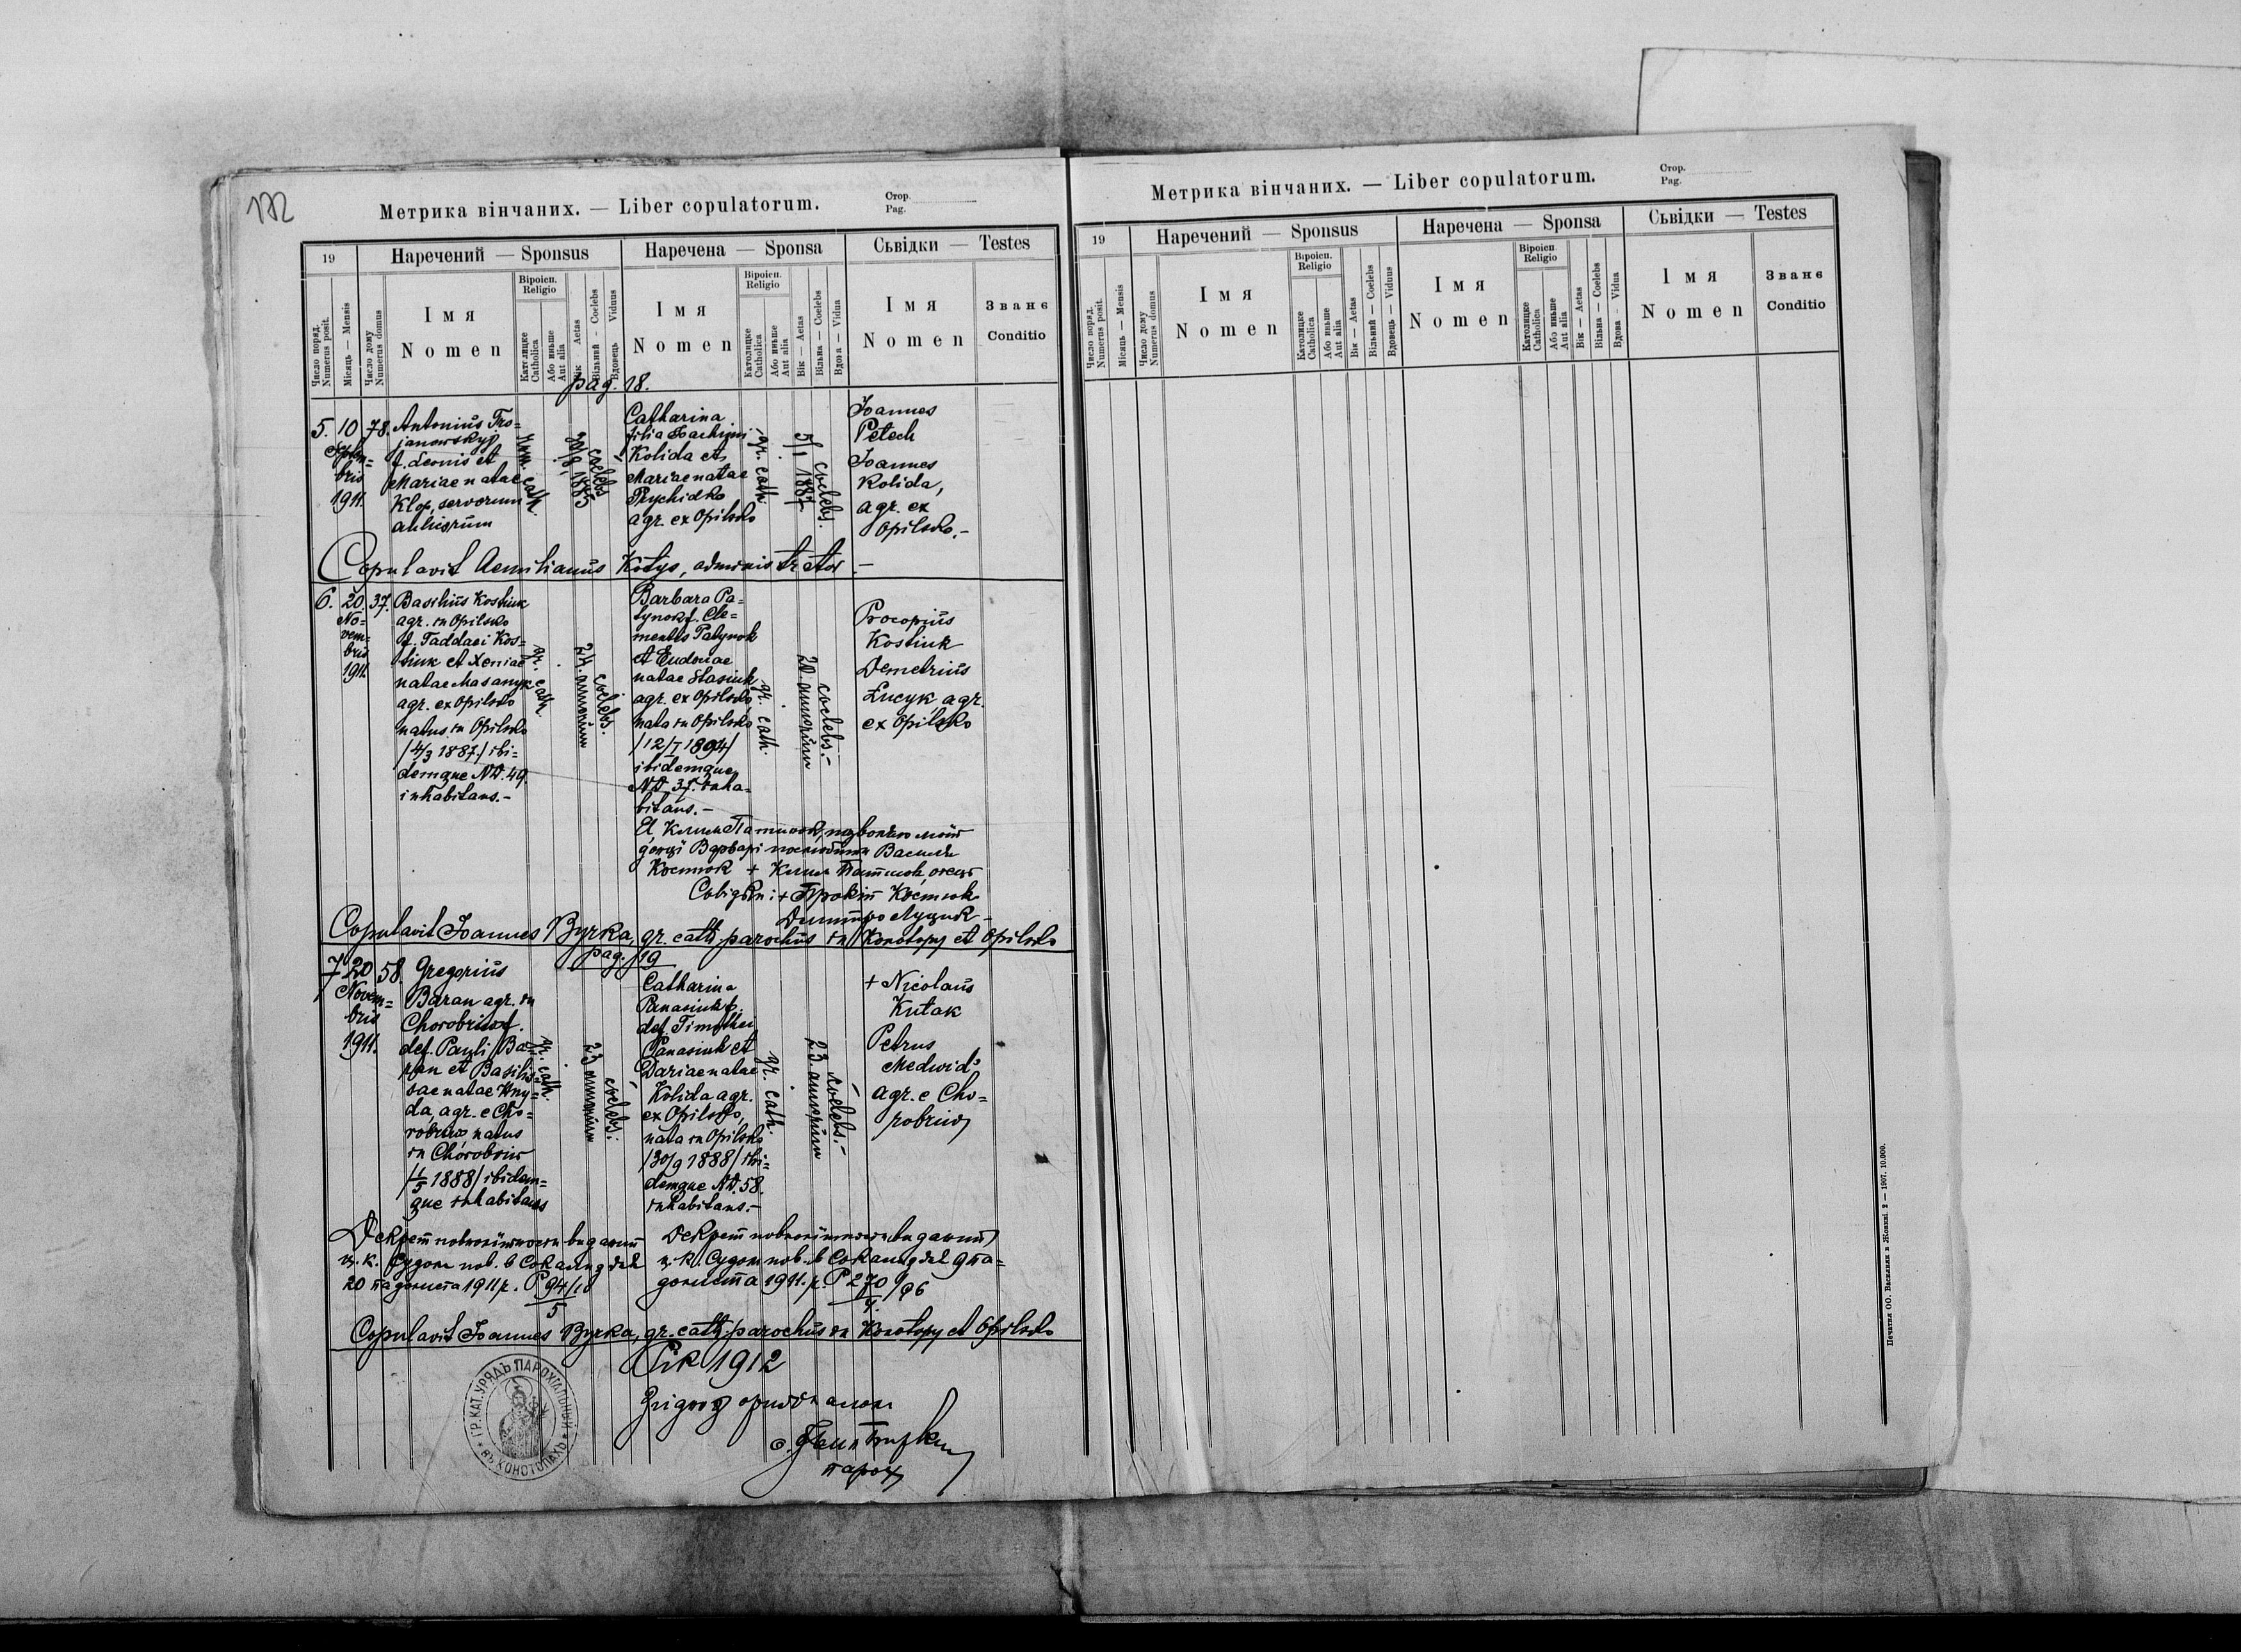 172
Метрика вінчаних. — Liber copulatorum.
Стор.
Pag.
19
Наречений — Sponsus
Наречена — Sponsa
Сьвідки — Testes
Число поряд.
Numerus posit.
Місяць — Mensis
Число дому
Numerus domus
Імя
Nomen
Віроісп.
Religio
Католицке
Catholica
Або иньше
Aut alia
Вік — Aetas
Вільний - Coelebs
Вдовець Viduus
Імя
Nomen
Віроісп.
Religio
Католицке
Catholica
Або иньше
Aut alia
Вік — Aetas
Вільна — Coelebs
Вдова - Vidua
Імя
Nomen
Званє
Conditio
pag. 18.
5. 10 78.
Septem=
bris
1911.
Antonius Tro=
janowskyj
f. Leonis et
Mariae natae
Klop, servorum
aulicorum
cath.
30/8 1885
coelebs
Catharina
filia Joachimi
Kolida et
Mariae natae
Prychidko
agr. ex Opilsko
gr. cath.
5/1 1887
coelebs.
Joannes
Petech
Joannes
Kolida,
agr. ex
Opilsko.-
Copulavit Aemilianus Kotys, administrator.-
6. 20 37.
No=
vem=
bris
1911.
Basilius Kostiuk
agr. in Opilsko
f. Taddaei Kos=
tiuk et Xeniae
natae Masanyk
agr. ex Opilsko
natus in Opilsko
/4/3 1887/ ibi=
demque ND. 49.
inhabitans.-
gr. cath.
24. annorum
coelebs.
Barbara Pa=
tynok f. Cle=
mentis Patynok
et Eudociae
natae Stasiuk
agr. ex Opilsko,
nata in Opilsko
/12/I 1894/
ibidemque
ND 37. inha=
bitans.-
gr. cath.
20. annorum
coelebs.-
Procopius
Kostiuk
Demetrius
Łucyk, agr.
ex Opilsko
Я, Клим Патинок, позволяю моїй
доньці Варварі Василя
Костюк + Клим Патинок, отець
Сьвідки: + Прокіп Костюк
Дмитро Луцик-
Copulavit Joannes Byrka, gr. cath. parochus in Konotopy et Opilsko
pag. 19
7 20 58.
Novem=
bris
1911.
Gregorius
Baran agr. in
Chorobriw f.
def. Pauli Ba=
ran et Basilis=
sae natae Hny=
da, agr. e Cho=
robriw, natus
in Chorobriw
/1/5 1888/ ibidem=
que inhabitans
gr. cath.
23 annorum
coelebs.
Catharina
Panasiuk f.
def. Timothei
Panasiuk et
Dariae natae
Kolida agr.
ex Opilsko,
nata in Opilsko
/30/9 1888/ ibi=
demque ND. 58.
inhabitans.-
gr. cath.
23. annorum
coelebs.-
+ Nicolaus
Kutak
Petrus
Medwid'
agr. e Cho=
robriw
Декрет повнолітности виданий
ц. к. Судом пов. в Сокали дня
20 падолиста 1911 р. P 94/10
5
Декрет повнолітности виданий
ц. к. Судом пов. в Сокали дня 9 па=
долиста 1911. р. P 270/96
4.
Copulavit Joannes Byrka, gr. cath. parochus in Konotopy et Opilsko
Рік 1912
парох
ГР.КАТ.УРЯДЪ ПАРОХІАЛЬНЫЙ
ВЪ КОНОТОПАХЪ
Метрика вінчаних. — Liber copulatorum.
Стор.
Pag.
19
Наречений — Sponsus
Наречена — Sponsa
Сьвідки — Testes
Число поряд.
Numerus posit.
Місяць — Mensis
Число дому
Numerus domus
Імя
Nomen
Віроісп.
Religio
Католицке
Catholica
Або иньше
Aut alia
Вік — Aetas
Вільний — Coelebs
Вдовець — Viduus
Імя
Nomen
Віроісп.
Religio
Католицке
Catholica
Або иньше
Aut alia
Вік — Aetas
Вільна — Coelebs
Вдова - Vidua
Імя
Nomen
Званє
Conditio
Печатня ОО. Василиян в Жовкві. 2 — 1907. 10.000.